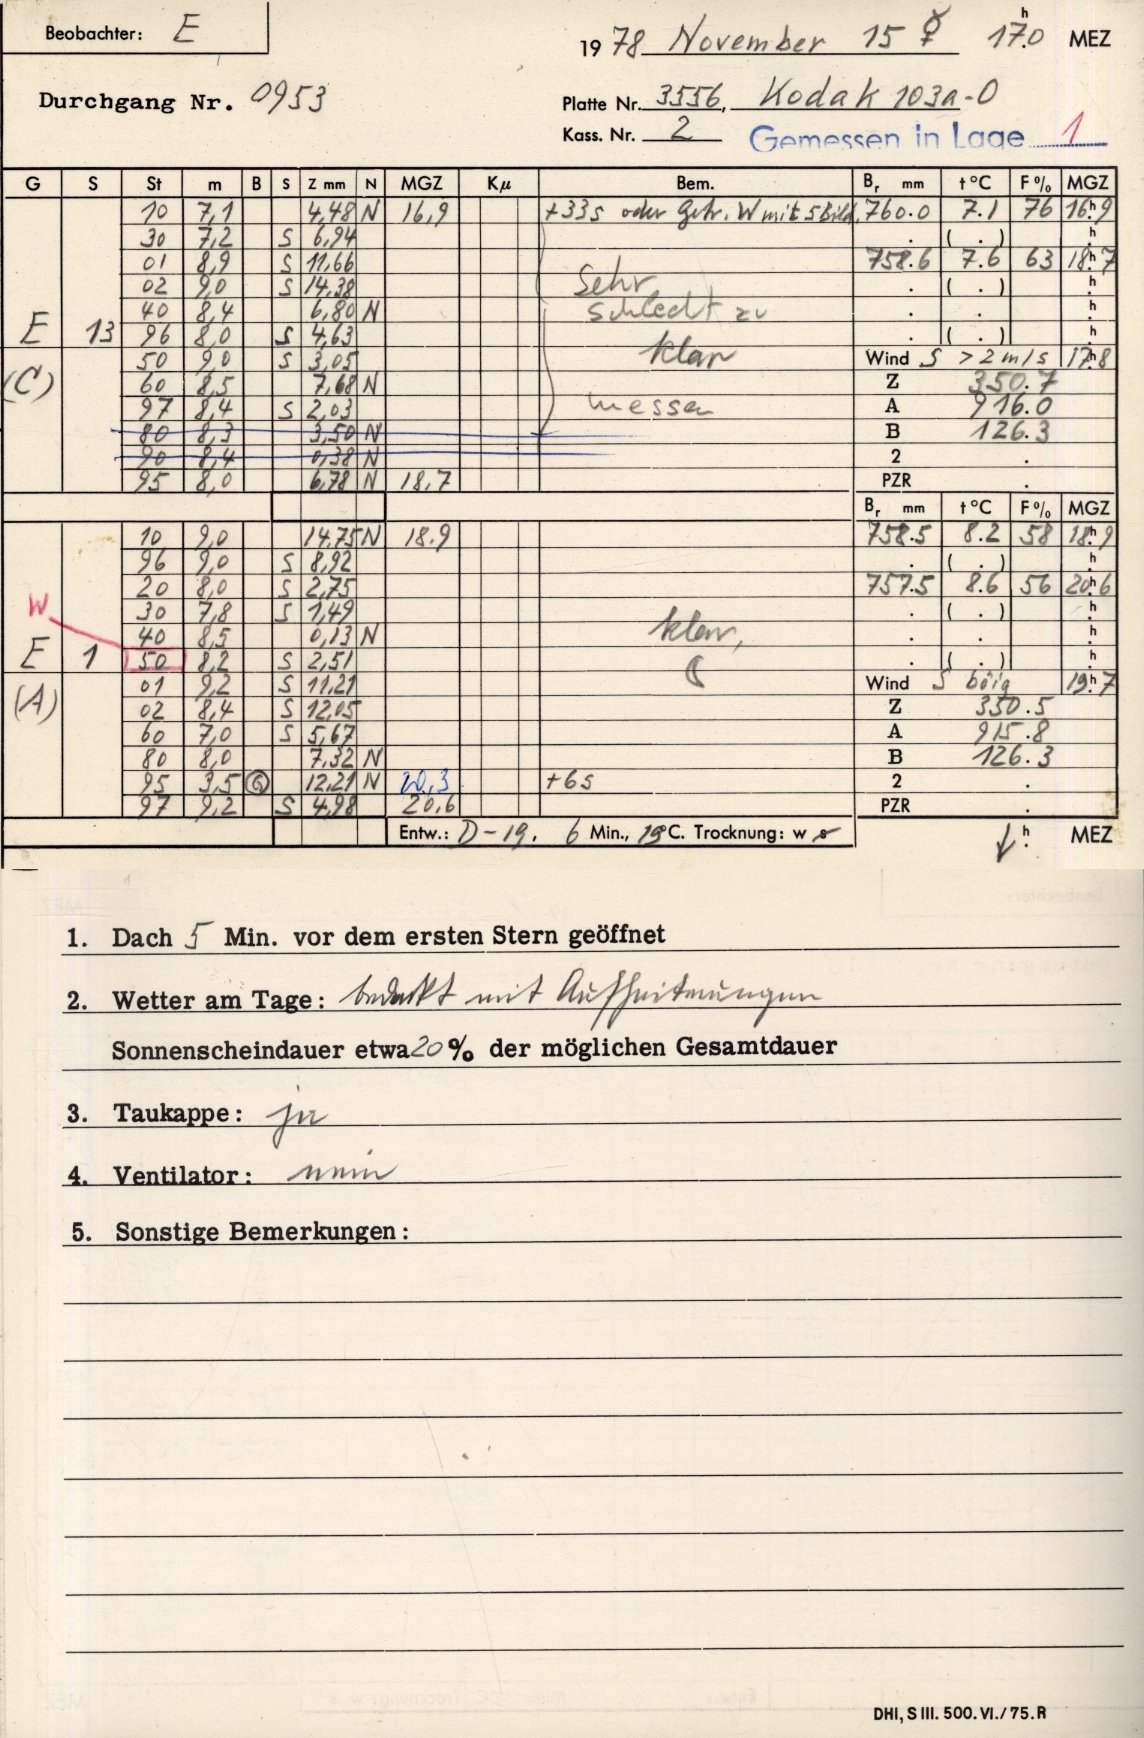 Beobachter: E
1978 November 15 ☿ 17.0 h MEZ
Durchgang Nr. 0953
Platte Nr. 3556, Kodak 103a-O
Kass. Nr. 2 Gemessen in Lage 1
G S St m B S Z mm N MGZ Kμ Bem. Br mm t°C F% MGZ
10 7,1 4,48 N 16,9 +33s oder Getr. W mit 5 Bild. 760.0 7.1 76 16h9
30 7,2 S 6,94 . ( . ) h
01 8,9 S 11,66 758.6 7.6 63 18h7
02 9,0 S 14,38 Sehr . ( . ) h
40 8,4 6,80 N schlecht zu . . h
E 13 96 8,0 S 4,63 . ( . ) h
50 9,0 S 3,05 klar Wind S >2 m/s 17h8
(C) 60 8,5 7,68 N Z 350.7
97 8,4 S 2,03 messen A 916.0
80 8,3 3,50 N B 126.3
90 8,4 0,38 N 2 .
95 8,0 6,78 N 18,7 PZR .
Br mm t°C F% MGZ
10 9,0 14,75 N 18.9 758.5 8.2 58 18h9
96 9,0 S 8,92 . ( . ) h
20 8,0 S 2,75 757.5 8.6 56 20h6
W 30 7,8 S 1,49 . ( . ) h
40 8,5 0,13 N klar, . . h
E 1 50 8,2 S 2,51 ☾ . ( . ) h
01 9,2 S 11,21 Wind S böig 19h7
(A) 02 8,4 S 12,05 Z 350.5
60 7,0 S 5,67 A 915.8
80 8,0 7,32 N B 126.3
95 3,5 G 12,21 N 20,3 +6s 2 .
97 9,2 S 4,98 20,6 PZR .
Entw.: D-19. 6 Min., 19°C. Trocknung: w s h MEZ
1. Dach 5 Min. vor dem ersten Stern geöffnet
2. Wetter am Tage: bedeckt mit Aufheiterungen
Sonnenscheindauer etwa 20 % der möglichen Gesamtdauer
3. Taukappe: ja
4. Ventilator: nein
5. Sonstige Bemerkungen:
DHI, S III. 500. VI./75. R